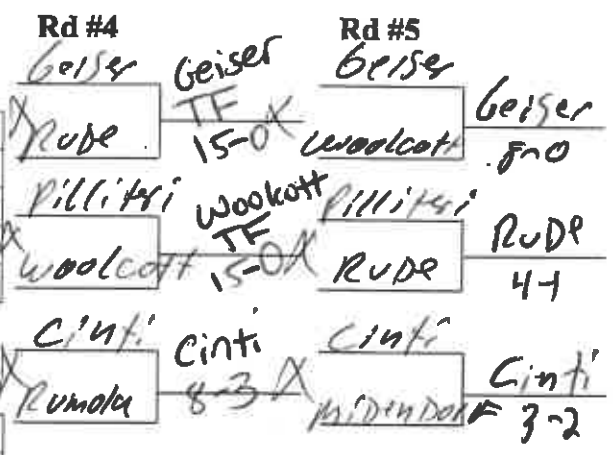 Rd #4
Geiser
Rude
Geiser
TF
15-0
Pilliteri
Woolcott
Woolcott
TF
15-0
Cinti
Rumola
Cinti
8-3
Rd #5
Geiser
Woolcott
Geiser
8-0
Pilliteri
Rude
Rude
4-1
Cinti
Midendorf
Cinti
3-2